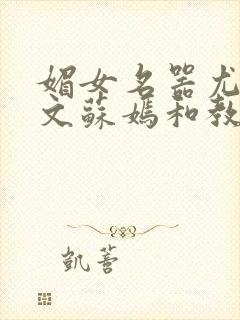 媚女名器尤
文蘇媽和教
凱薈